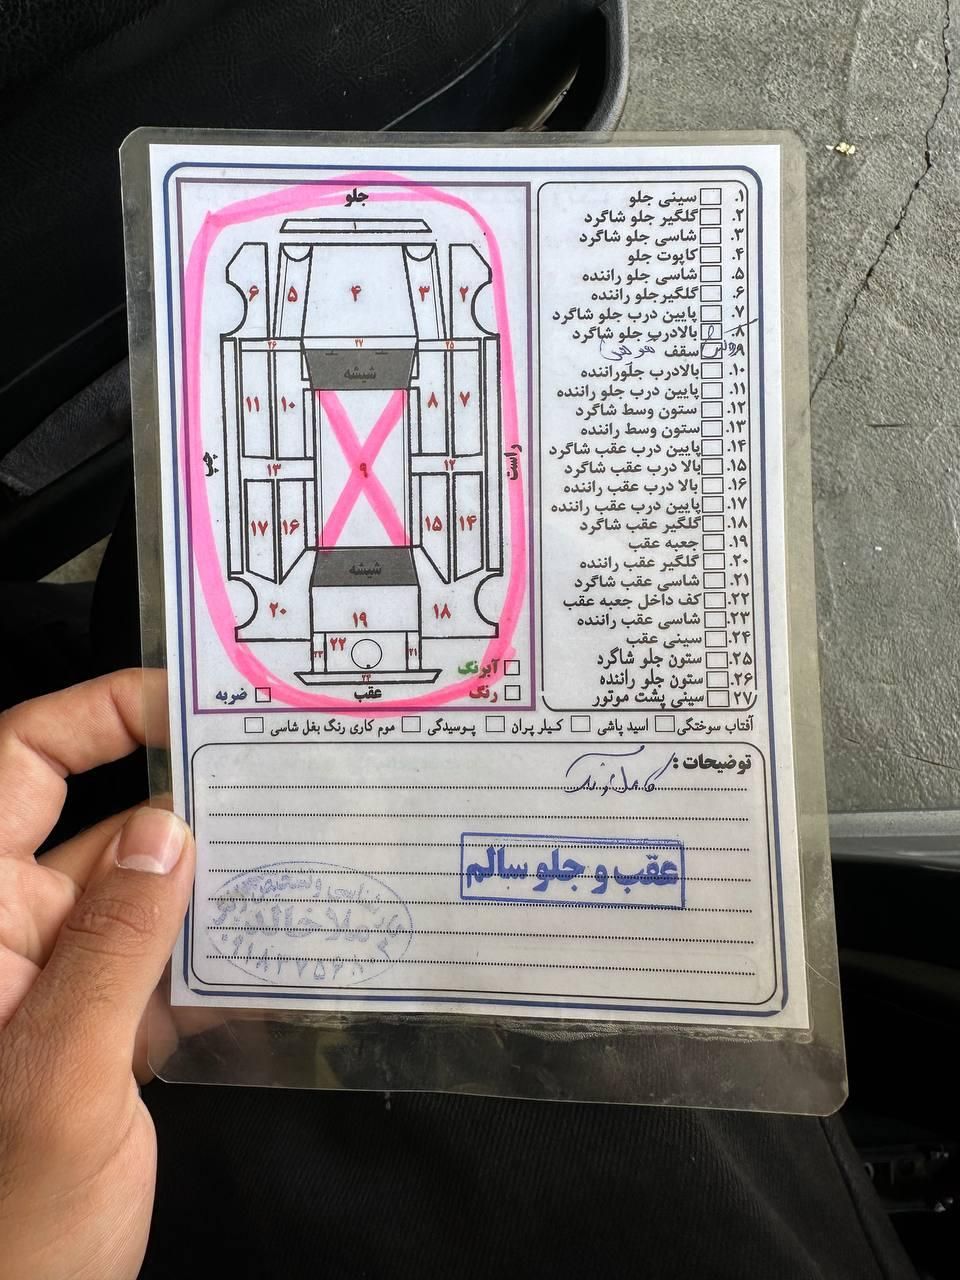 جلو
۱
۶
۵
۴
۳
۲
۲۶
۲۷
۲۵
شیشه
۱۱
۱۰
۸
۷
چپ
۹
راست
۱۳
۱۲
۱۷
۱۶
۱۵
۱۴
شیشه
۲۰
۱۹
۱۸
۲۳
۲۲
۲۱
۲۴
آبرنگ
رنگ
عقب
ضربه
۱. سینی جلو
۲. گلگیر جلو شاگرد
۳. شاسی جلو شاگرد
۴. کاپوت جلو
۵. شاسی جلو راننده
۶. گلگیرجلو راننده
۷. پایین درب جلو شاگرد
۸. بالادرب جلو شاگرد
۹. سقف
۱۰. بالادرب جلوراننده
۱۱. پایین درب جلو راننده
۱۲. ستون وسط شاگرد
۱۳. ستون وسط راننده
۱۴. پایین درب عقب شاگرد
۱۵. بالا درب عقب شاگرد
۱۶. بالا درب عقب راننده
۱۷. پایین درب عقب راننده
۱۸. گلگیر عقب شاگرد
۱۹. جعبه عقب
۲۰. گلگیر عقب راننده
۲۱. شاسی عقب شاگرد
۲۲. کف داخل جعبه عقب
۲۳. شاسی عقب راننده
۲۴. سینی عقب
۲۵. ستون جلو شاگرد
۲۶. ستون جلو راننده
۲۷. سینی پشت موتور
آفتاب سوختگی اسید پاشی کیلر پران پوسیدگی موم کاری رنگ بغل شاسی
توضیحات :
عقب و جلو سالم